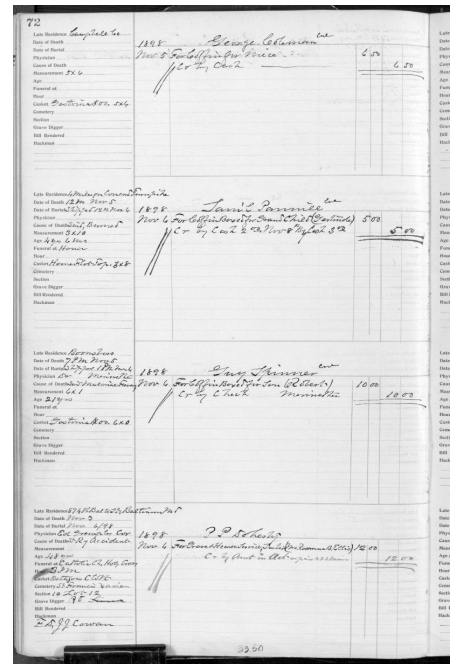 72
Late Residence Campbell Co
Date of Death
Date of Burial
Physician
Cause of Death
Measurement 5x6
Age
Funeral at
Hour
Casket Fostoria #00, 5x6
Cemetery
Section
Grave Digger
Bill Rendered
Hackman
1898 George Coleman Col
Nov 5 For Coffin for Niece 6 50
Cr by Cash 6 50
Late Residence Turnpike
Date of Death 12 M Nov 5
Date of Burial Nov 6
Physician
Cause of Death
Measurement 3x10
Age 4 yrs 6 mos
Funeral at Home
Hour
Casket Flat Top 3x8
Cemetery
Section
Grave Digger
Bill Rendered
Hackman
1898 Sam'l Pannill Col
Nov 6 For Coffin Box &c for Grand Child (Gertrude) 5 00
Cr by Cash 2 00 Nov 8th By Cash 3 00 5 00
Late Residence Boonsboro
Date of Death 7 PM Nov 5
Date of Burial
Physician Dr
Cause of Death
Measurement 6x1
Age 21 yrs
Funeral at
Hour
Casket Fostoria #00. 6x0
Cemetery
Section
Grave Digger
Bill Rendered
Hackman
1898 Guy Skinner Col
Nov 6 For Coffin Box &c for Son (Robert) 10 00
Cr by Check 10 00
Late Residence Baltimore Md
Date of Death Nov 3
Date of Burial Nov 6/98
Physician
Cause of Death Ry Accident
Measurement
Age 48 yrs
Funeral at Catholic Ch Holy Cross
Hour 3 PM
Casket Cloth
Cemetery St Francis Xavier
Section 10 Lot 12
Grave Digger
Bill Rendered
Hackman
J.J. Cowan
1898 P P Doherty
Nov 6 12 00
Cr by Amt in 12 00
33.50